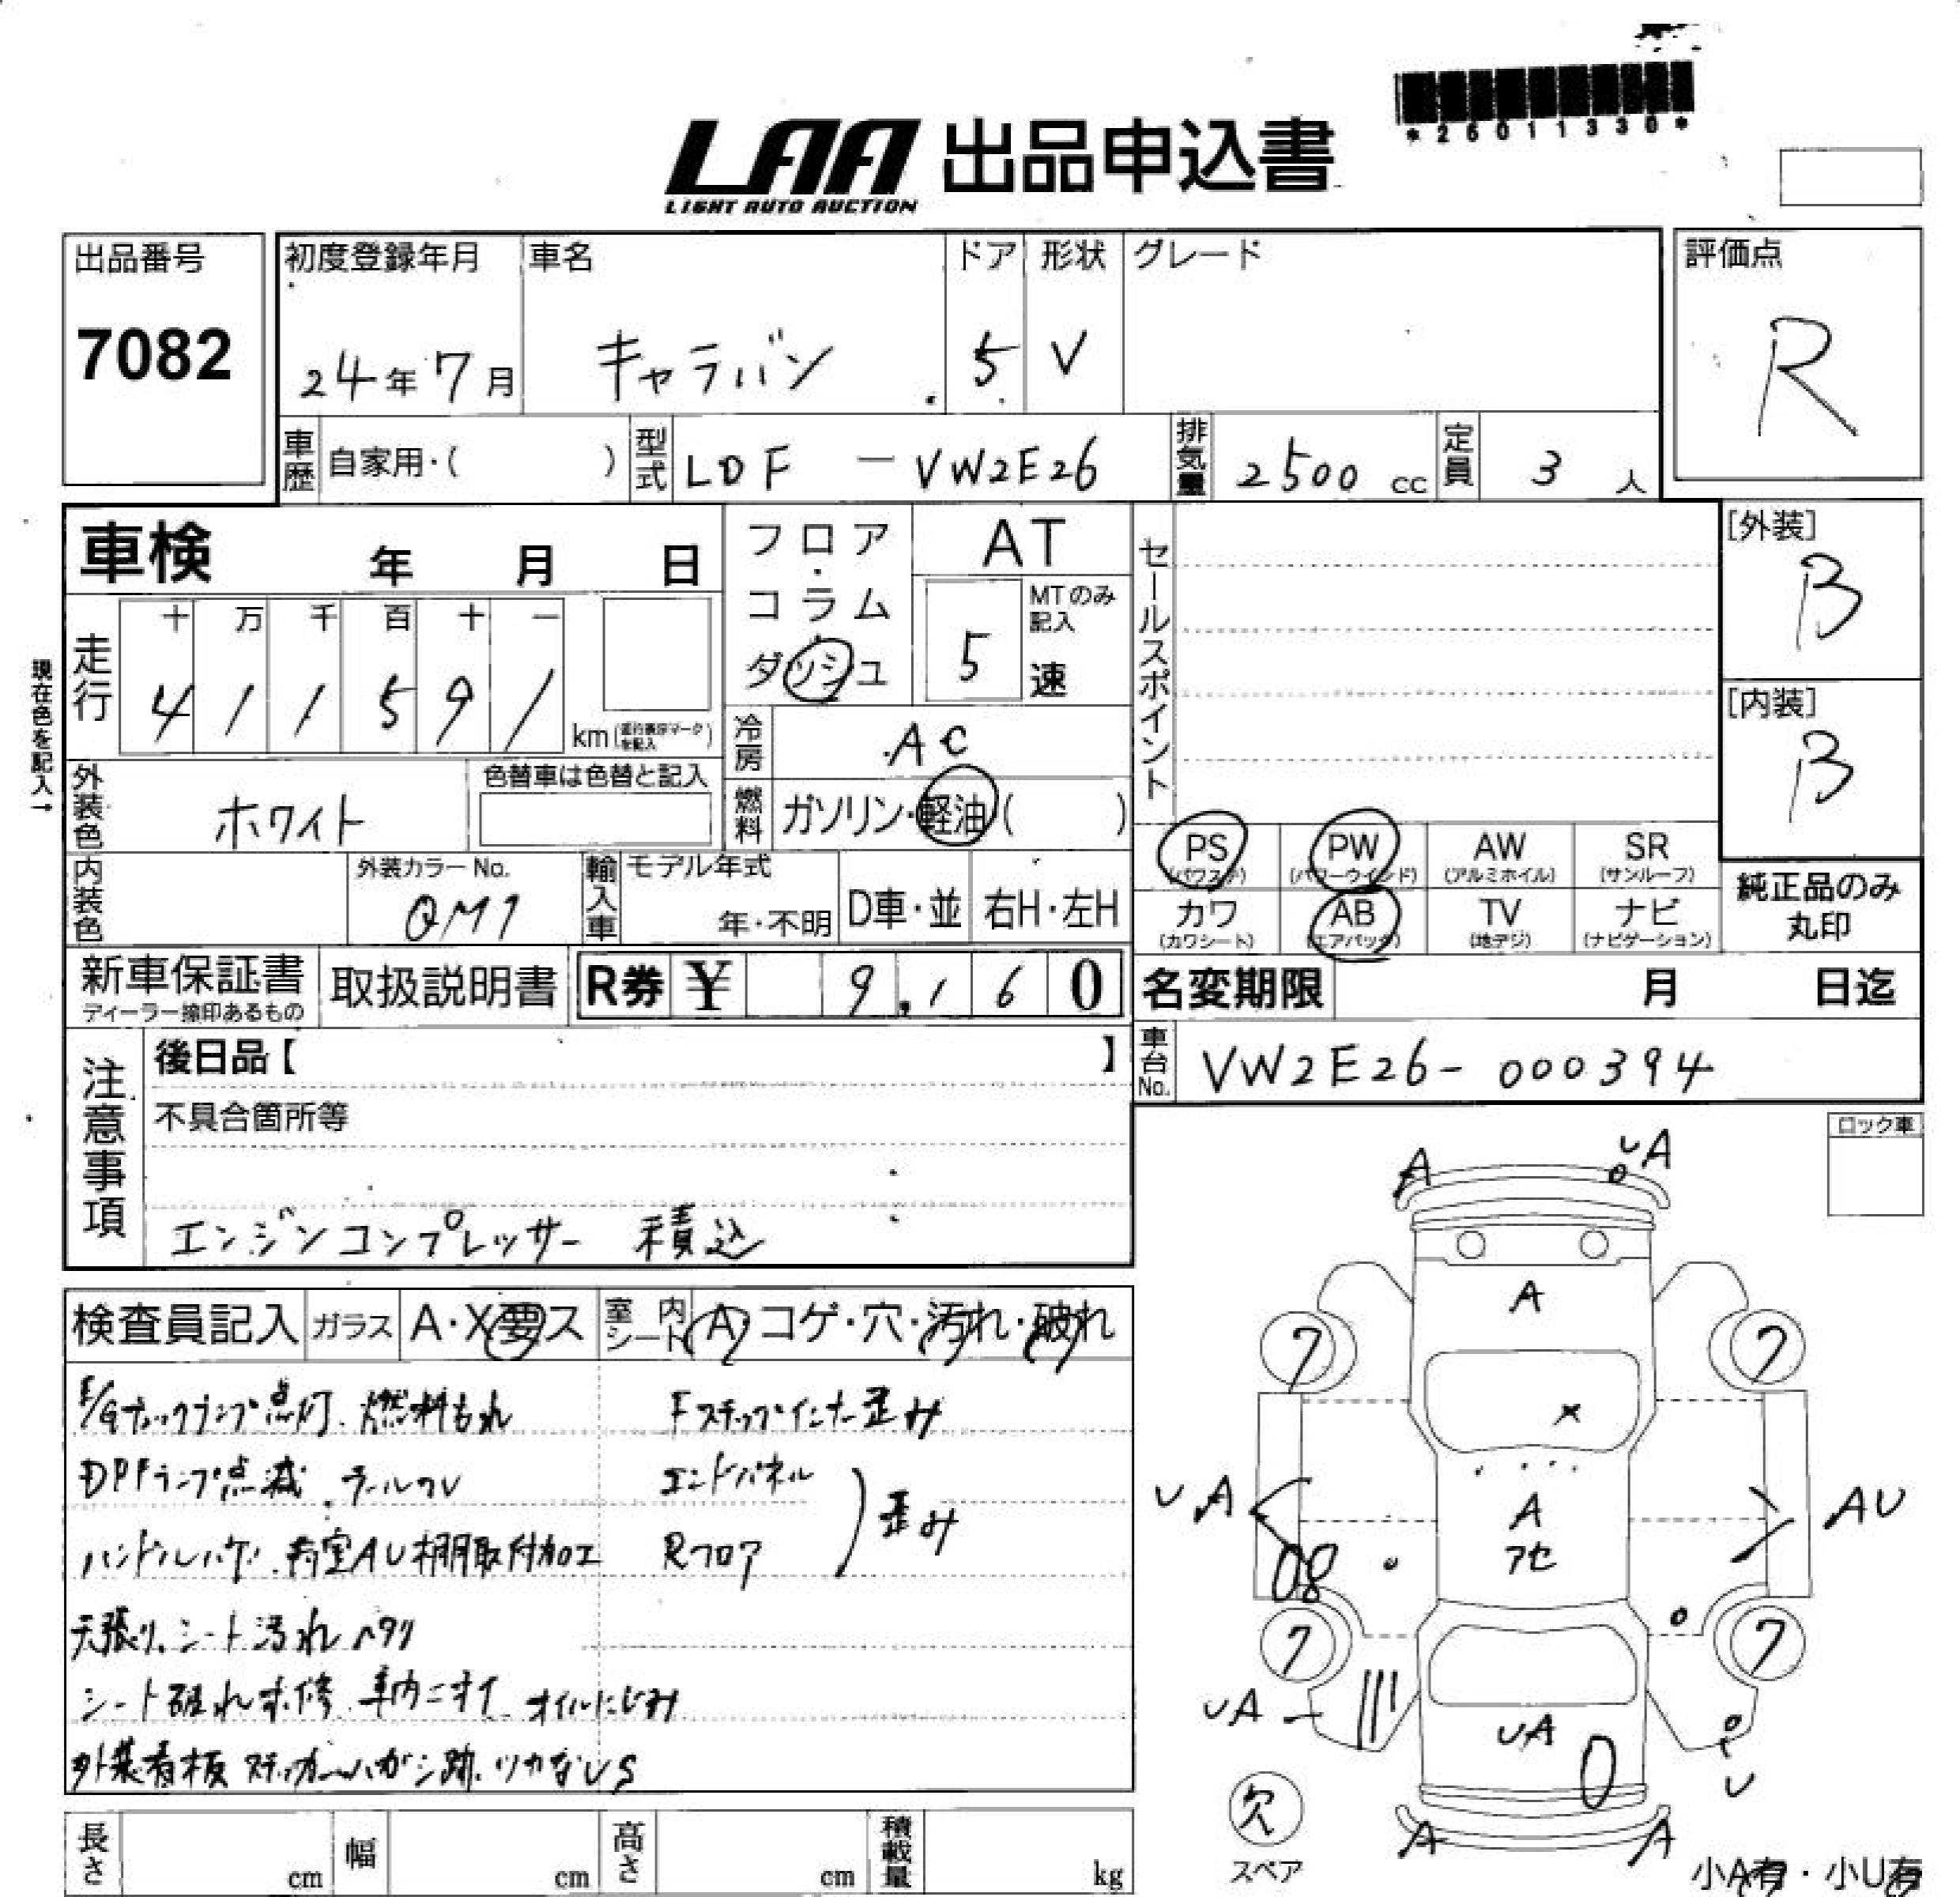 *26011330*
LAA 出品申込書
LIGHT AUTO AUCTION
出品番号
7082
初度登録年月
24年7月
車名
キャラバン
ドア
5
形状
V
グレード
評価点
R
車歴
自家用・( )
型式
LDF - VW2E26
排気量
2500 cc
定員
3 人
車検 年 月 日
フロア・コラム・ダッシュ
AT
MTのみ記入
5 速
セールスポイント
[外装]
B
[内装]
B
現在色を記入→
走行
十 万 千 百 十 一
4 1 1 5 9 1
km
冷房
AC
燃料
ガソリン・軽油( )
外装色
ホワイト
色替車は色替と記入
内装色
外装カラーNo.
QM1
輸入車
モデル年式
年・不明
D車・並
右H・左H
PS
(パワステ)
PW
(パワーウインド)
AW
(アルミホイル)
SR
(サンルーフ)
カワ
(カワシート)
AB
(エアバッグ)
TV
(地デジ)
ナビ
(ナビゲーション)
純正品のみ
丸印
新車保証書
ディーラー捺印あるもの
取扱説明書
R券 ¥ 9,160
名変期限 月 日迄
車台No.
VW2E26-000394
注意事項
後日品【 】
不具合箇所等
エンジンコンプレッサー 積込
ロック車
検査員記入
ガラス
A・X要ス
室内シート
A・コゲ・穴・汚れ・破れ
E/Gチェックランプ点灯、燃料もれ
Fステップインナー歪み
DPFランプ点滅
エンドパネル
歪み
ハンドルハゲ、荷室AU棚取付加工
Rフロア
天張り、シート汚れヘタリ
シート破れ未修、車内ニオイ オイルにじみ
外装看板 ステッカーハガシ跡、
A
UA
A
7
7
X
UA
A
アセ
AU
08
7
7
UA
UA
U
欠
スペア
A
A
小A有・小U有
長さ cm
幅 cm
高さ cm
積載量 kg